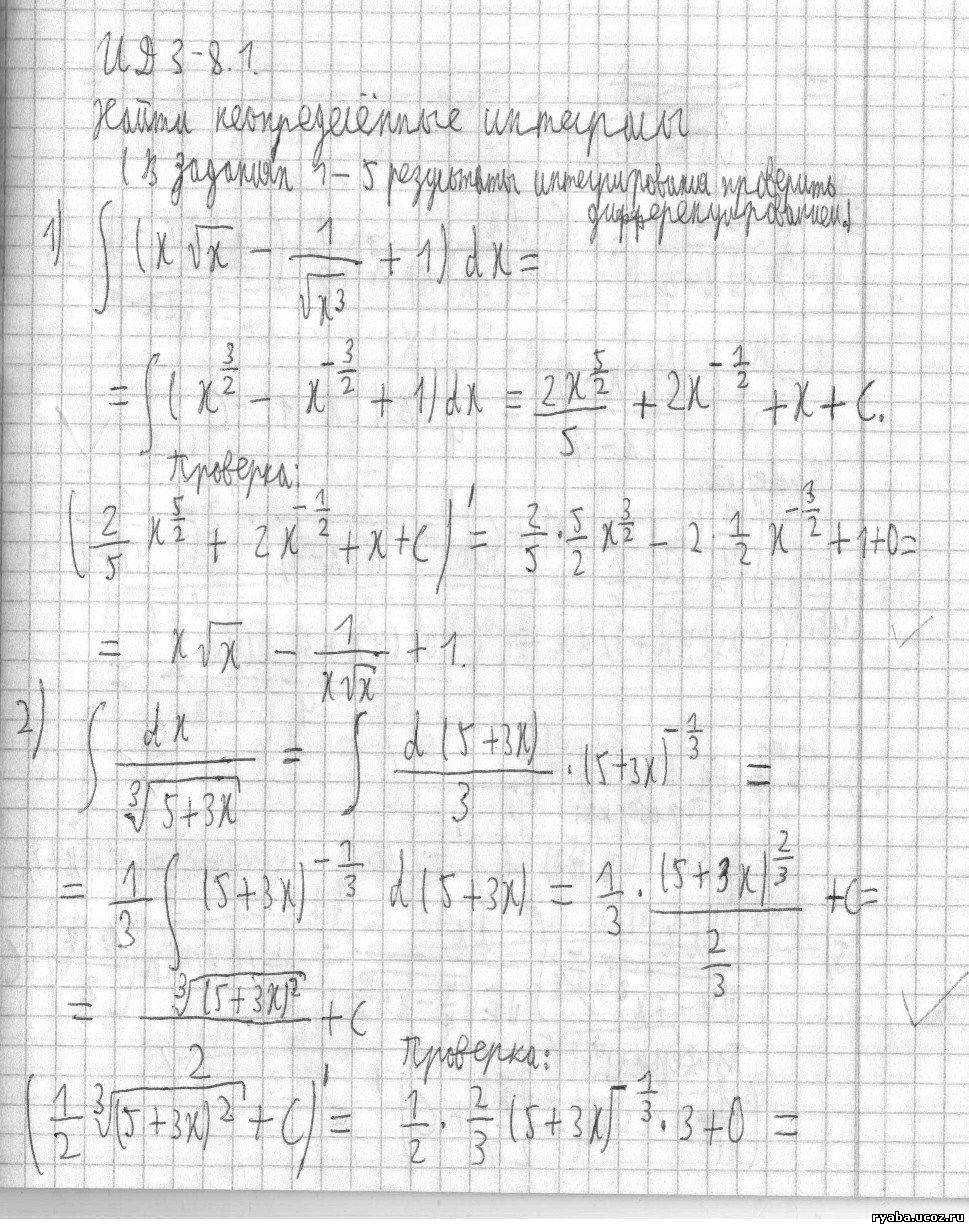 ИДЗ-8.1.
Найти неопределённые интегралы
(В заданиях 1-5 результаты интегрирования проверить
дифференцированием)
1) ∫ (x√x - 1/√x³ + 1) dx =
= ∫ (x^(3/2) - x^(-3/2) + 1) dx = 2x^(5/2)/5 + 2x^(-1/2) + x + C.
Проверка:
(2/5 x^(5/2) + 2x^(-1/2) + x + C)' = 2/5 · 5/2 x^(3/2) - 2 · 1/2 x^(-3/2) + 1 + 0 =
= x√x - 1/(x√x) + 1.
2) ∫ dx/∛(5+3x) = ∫ d(5+3x)/3 · (5+3x)^(-1/3) =
= 1/3 ∫ (5+3x)^(-1/3) d(5+3x) = 1/3 · (5+3x)^(2/3)/(2/3) + C =
= ∛((5+3x)²)/2 + C
Проверка:
(1/2 ∛((5+3x)²) + C)' = 1/2 · 2/3 (5+3x)^(-1/3) · 3 + 0 =
ryaba.ucoz.ru